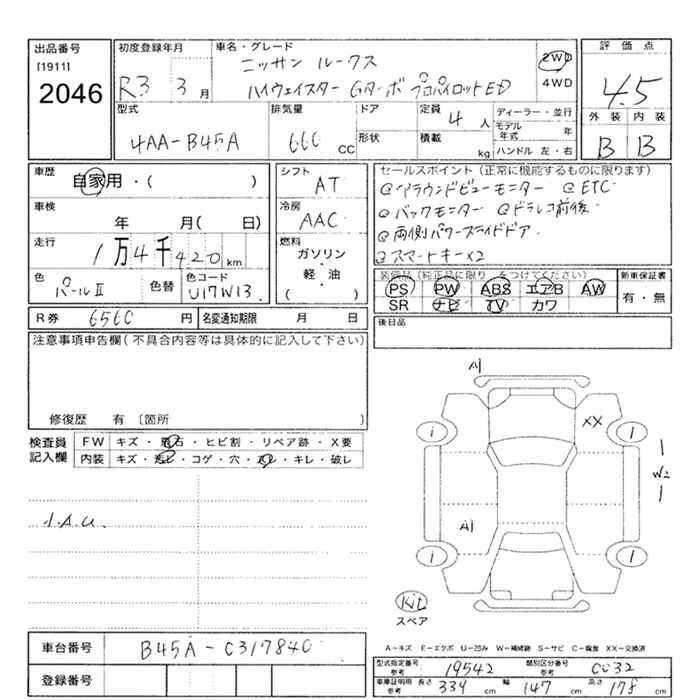 出品番号
[1911]
2046
初度登録年月
R3 3月
車名・グレード
ニッサン ルークス
ハイウェイスター Gターボ プロパイロットED
2WD
4WD
評価点
4.5
外装 内装
B B
型式
4AA-B45A
排気量
660 CC
ドア
形状
定員
4 人
積載
kg
ディーラー・並行
モデル年式 年
ハンドル 左・右
車歴
自家用・( )
車検
年 月( 日)
走行
1万4千420km
色
パールⅡ
色替
色コード
U17W13
シフト
AT
冷房
AAC
燃料
ガソリン
軽・油
・( )
セールスポイント(正常に機能するものに限ります)
@アラウンドビューモニター @ETC
@バックモニター @ドラレコ前後
@両側パワースライドドア
@スマートキー×2
装備品(純正品に限り をつけてください)
PS PW ABS エアB AW
SR ナビ TV カワ
新車保証書
有・無
R券 6560 円
名変通知期限 月 日
後日品
注意事項申告欄(不具合内容等は具体的に記入して下さい)
修復歴 有〔箇所 〕
検査員
記入欄
FW キズ・飛石・ヒビ割・リペア跡・X要
内装 キズ・汚レ・コゲ・穴・スレ・キレ・破レ
A1
XX
i i
W2
A1
i i
Kit
スペア
車台番号
B45A-C317840
登録番号
A-キズ E-エクボ U-凹み W-補修跡 S-サビ C-腐食 XX-交換済
型式指定番号
参考
19542
類別区分番号
参考
0032
車庫証明用
参考
長さ 339 cm 幅 147 cm 高さ 178 cm